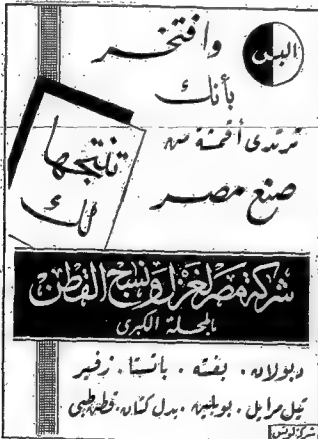 البس
وافتخر
بأنك
ترتدى أقمشة من
صنع مصر
تنتجها
لك
شركة مصر لغزل ونسج القطن
بالمحلة الكبرى
دبولان . بفته . باتستا . زفير
تيل مرايل . بوبلين . بدل كتان . قطن طبى